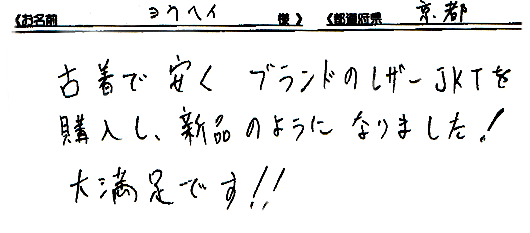 《お名前 ヨウヘイ 様》 《都道府県 京都
古着で安く ブランドのレザーJKTを
購入し、新品のようになりました!
大満足です!!